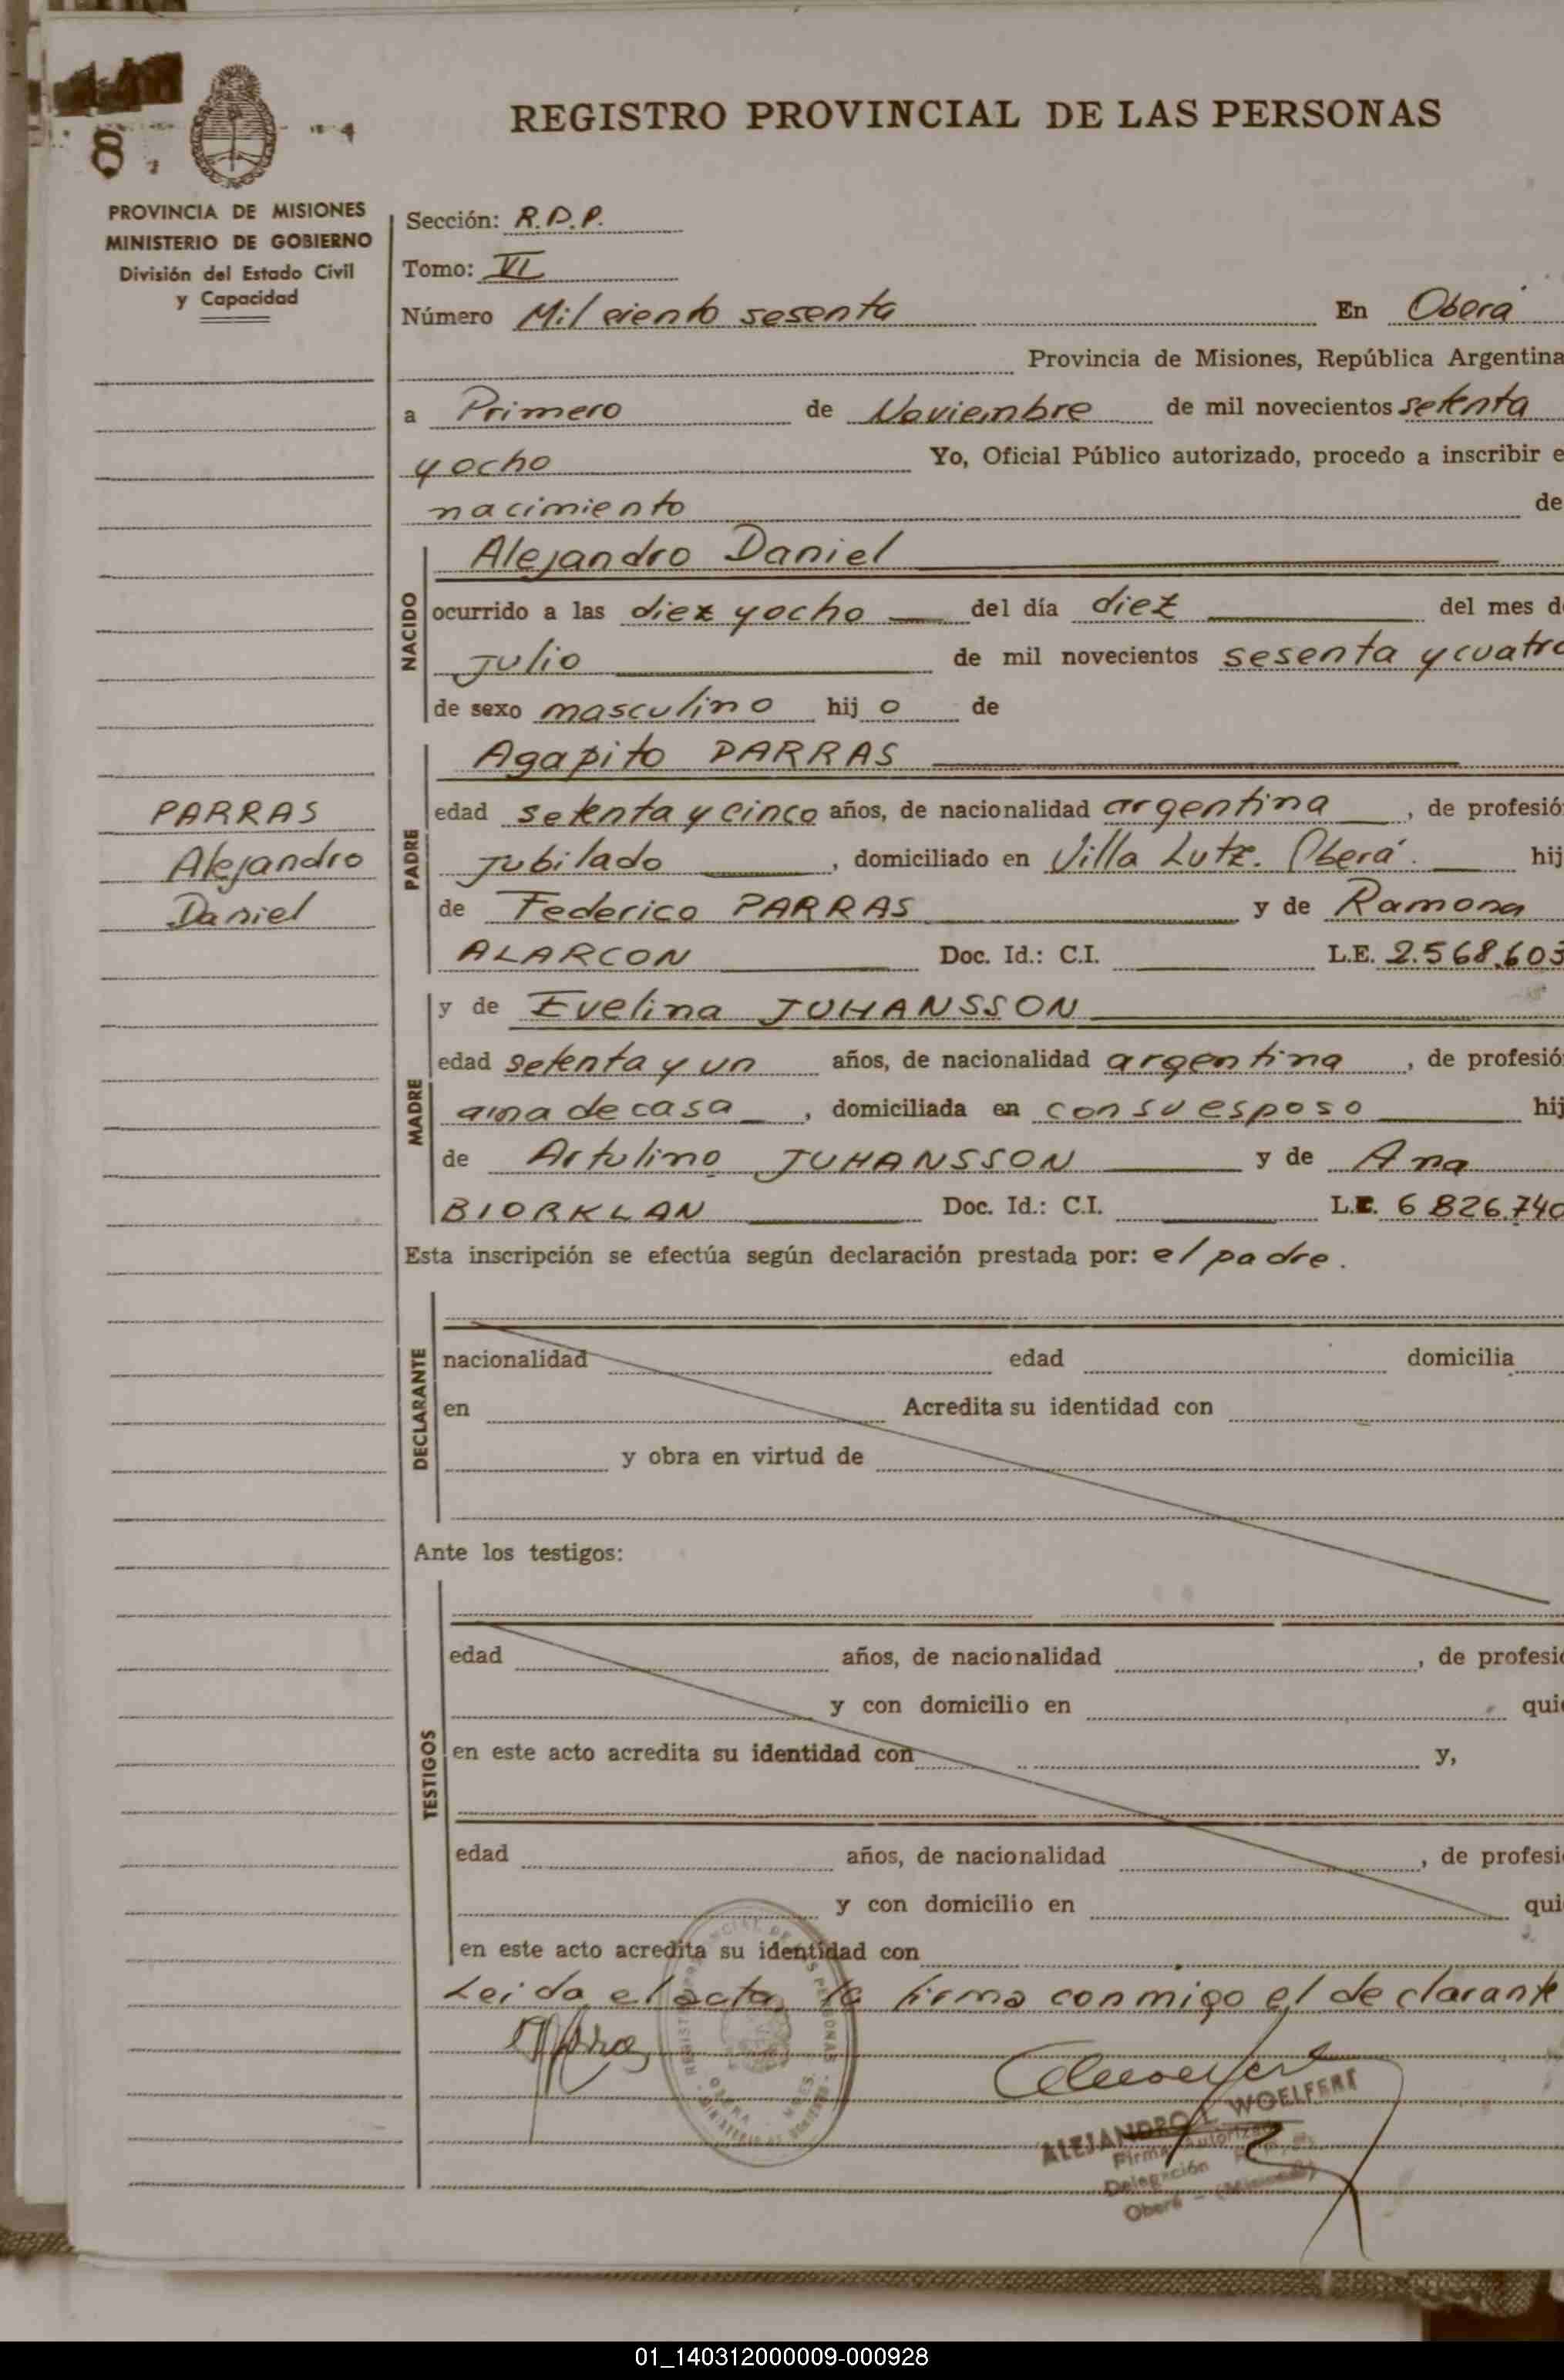 8
REGISTRO PROVINCIAL DE LAS PERSONAS
PROVINCIA DE MISIONES
MINISTERIO DE GOBIERNO
División del Estado Civil
y Capacidad
Sección: R.P.P.
Tomo: VI
Número Mil ciento sesenta En Oberá
Provincia de Misiones, República Argentina
a Primero de Noviembre de mil novecientos setenta
y ocho Yo, Oficial Público autorizado, procedo a inscribir e
nacimiento de
NACIDO
Alejandro Daniel
ocurrido a las diez y ocho del día diez del mes d
Julio de mil novecientos sesenta y cuatro
de sexo masculino hij o de
PADRE
Agapito PARRAS
PARRAS
Alejandro
Daniel
edad setenta y cinco años, de nacionalidad argentina, de profesió
jubilado, domiciliado en Villa Lutz. Oberá. hij
de Federico PARRAS y de Ramona
ALARCON Doc. Id.: C.I. L.E. 2.568.603
MADRE
y de Evelina JUHANSSON
edad setenta y un años, de nacionalidad argentina, de profesió
ama de casa, domiciliada en con su esposo hij
de Artulino JUHANSSON y de Ana
BIORKLAN Doc. Id.: C.I. L.C. 6 826.740
Esta inscripción se efectúa según declaración prestada por: el padre.
DECLARANTE
nacionalidad edad domicilia
en Acredita su identidad con
y obra en virtud de
Ante los testigos:
TESTIGOS
edad años, de nacionalidad, de profesi
y con domicilio en qui
en este acto acredita su identidad con y,
edad años, de nacionalidad, de profesi
y con domicilio en qui
en este acto acredita su identidad con
Leida el acta, la firma conmigo el declarante
ALEJANDRO L. WOELFERT
Firma Autorizada
Delegación R.P.P.
Oberá - (Misiones)
01_140312000009-000928